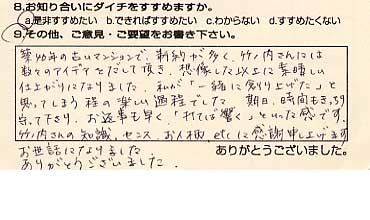 8.お知り合いにダイチをすすめますか。
a.是非すすめたい b.できればすすめたい c.わからない d.すすめたくない
9.その他、ご意見・ご要望をお書き下さい。
築40年の古いマンションで、制約が多く、竹ノ内さんには
数々のアイデアをだして頂き、想像した以上に素晴しい
仕上がりになりました。私が「一緒に創り上げた」と
思ってしまう程の楽しい過程でした 期日、時間もきっちり
守って下さり、お返事も早く「打てば響く」といった感です。
竹ノ内さんの知識、センス、お人柄、etcに感謝申し上げます
お世話になりました
ありがとうございました。
ありがとうございました。